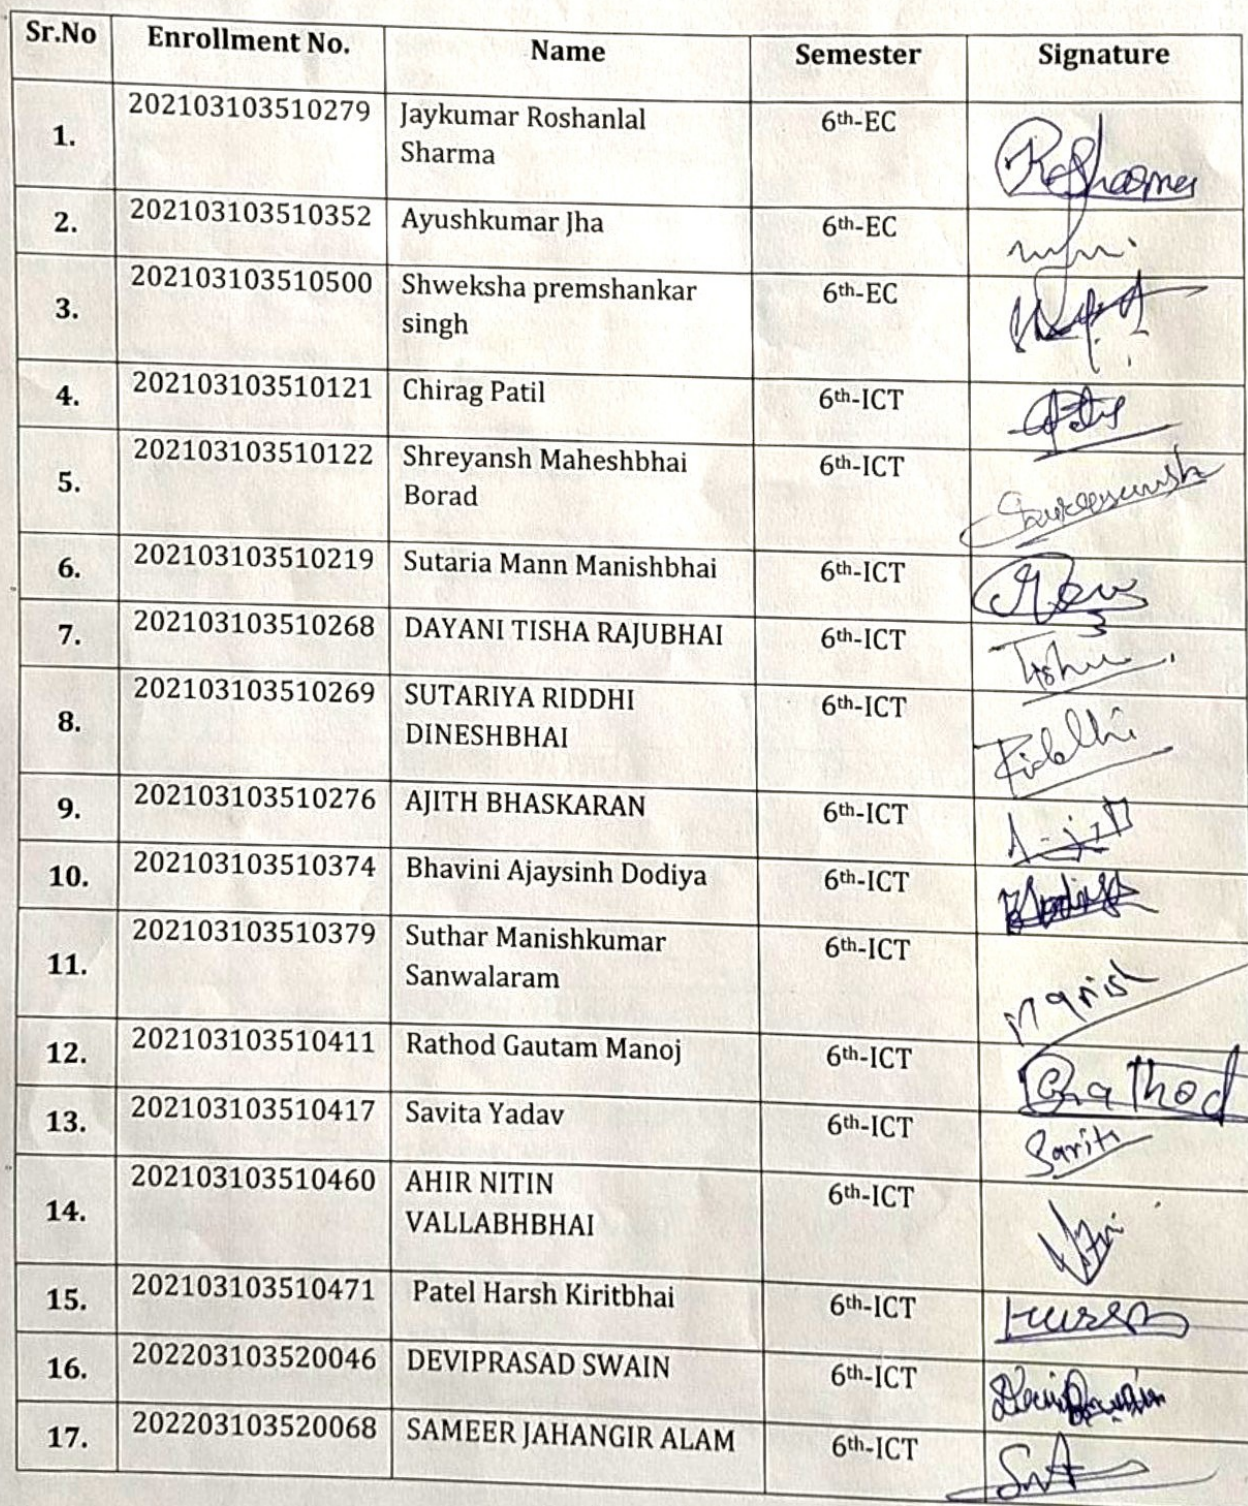 Sr.No Enrollment No. Name Semester Signature
1. 202103103510279 Jaykumar Roshanlal 6th-EC
Sharma
2. 202103103510352 Ayushkumar Jha 6th-EC
3. 202103103510500 Shweksha premshankar 6th-EC
singh
4. 202103103510121 Chirag Patil 6th-ICT
5. 202103103510122 Shreyansh Maheshbhai 6th-ICT
Borad
6. 202103103510219 Sutaria Mann Manishbhai 6th-ICT
7. 202103103510268 DAYANI TISHA RAJUBHAI 6th-ICT
8. 202103103510269 SUTARIYA RIDDHI 6th-ICT Riddhi
DINESHBHAI
9. 202103103510276 AJITH BHASKARAN 6th-ICT
10. 202103103510374 Bhavini Ajaysinh Dodiya 6th-ICT
11. 202103103510379 Suthar Manishkumar 6th-ICT Manish
Sanwalaram
12. 202103103510411 Rathod Gautam Manoj 6th-ICT Rathod
13. 202103103510417 Savita Yadav 6th-ICT
14. 202103103510460 AHIR NITIN 6th-ICT
VALLABHBHAI
15. 202103103510471 Patel Harsh Kiritbhai 6th-ICT
16. 202203103520046 DEVIPRASAD SWAIN 6th-ICT
17. 202203103520068 SAMEER JAHANGIR ALAM 6th-ICT